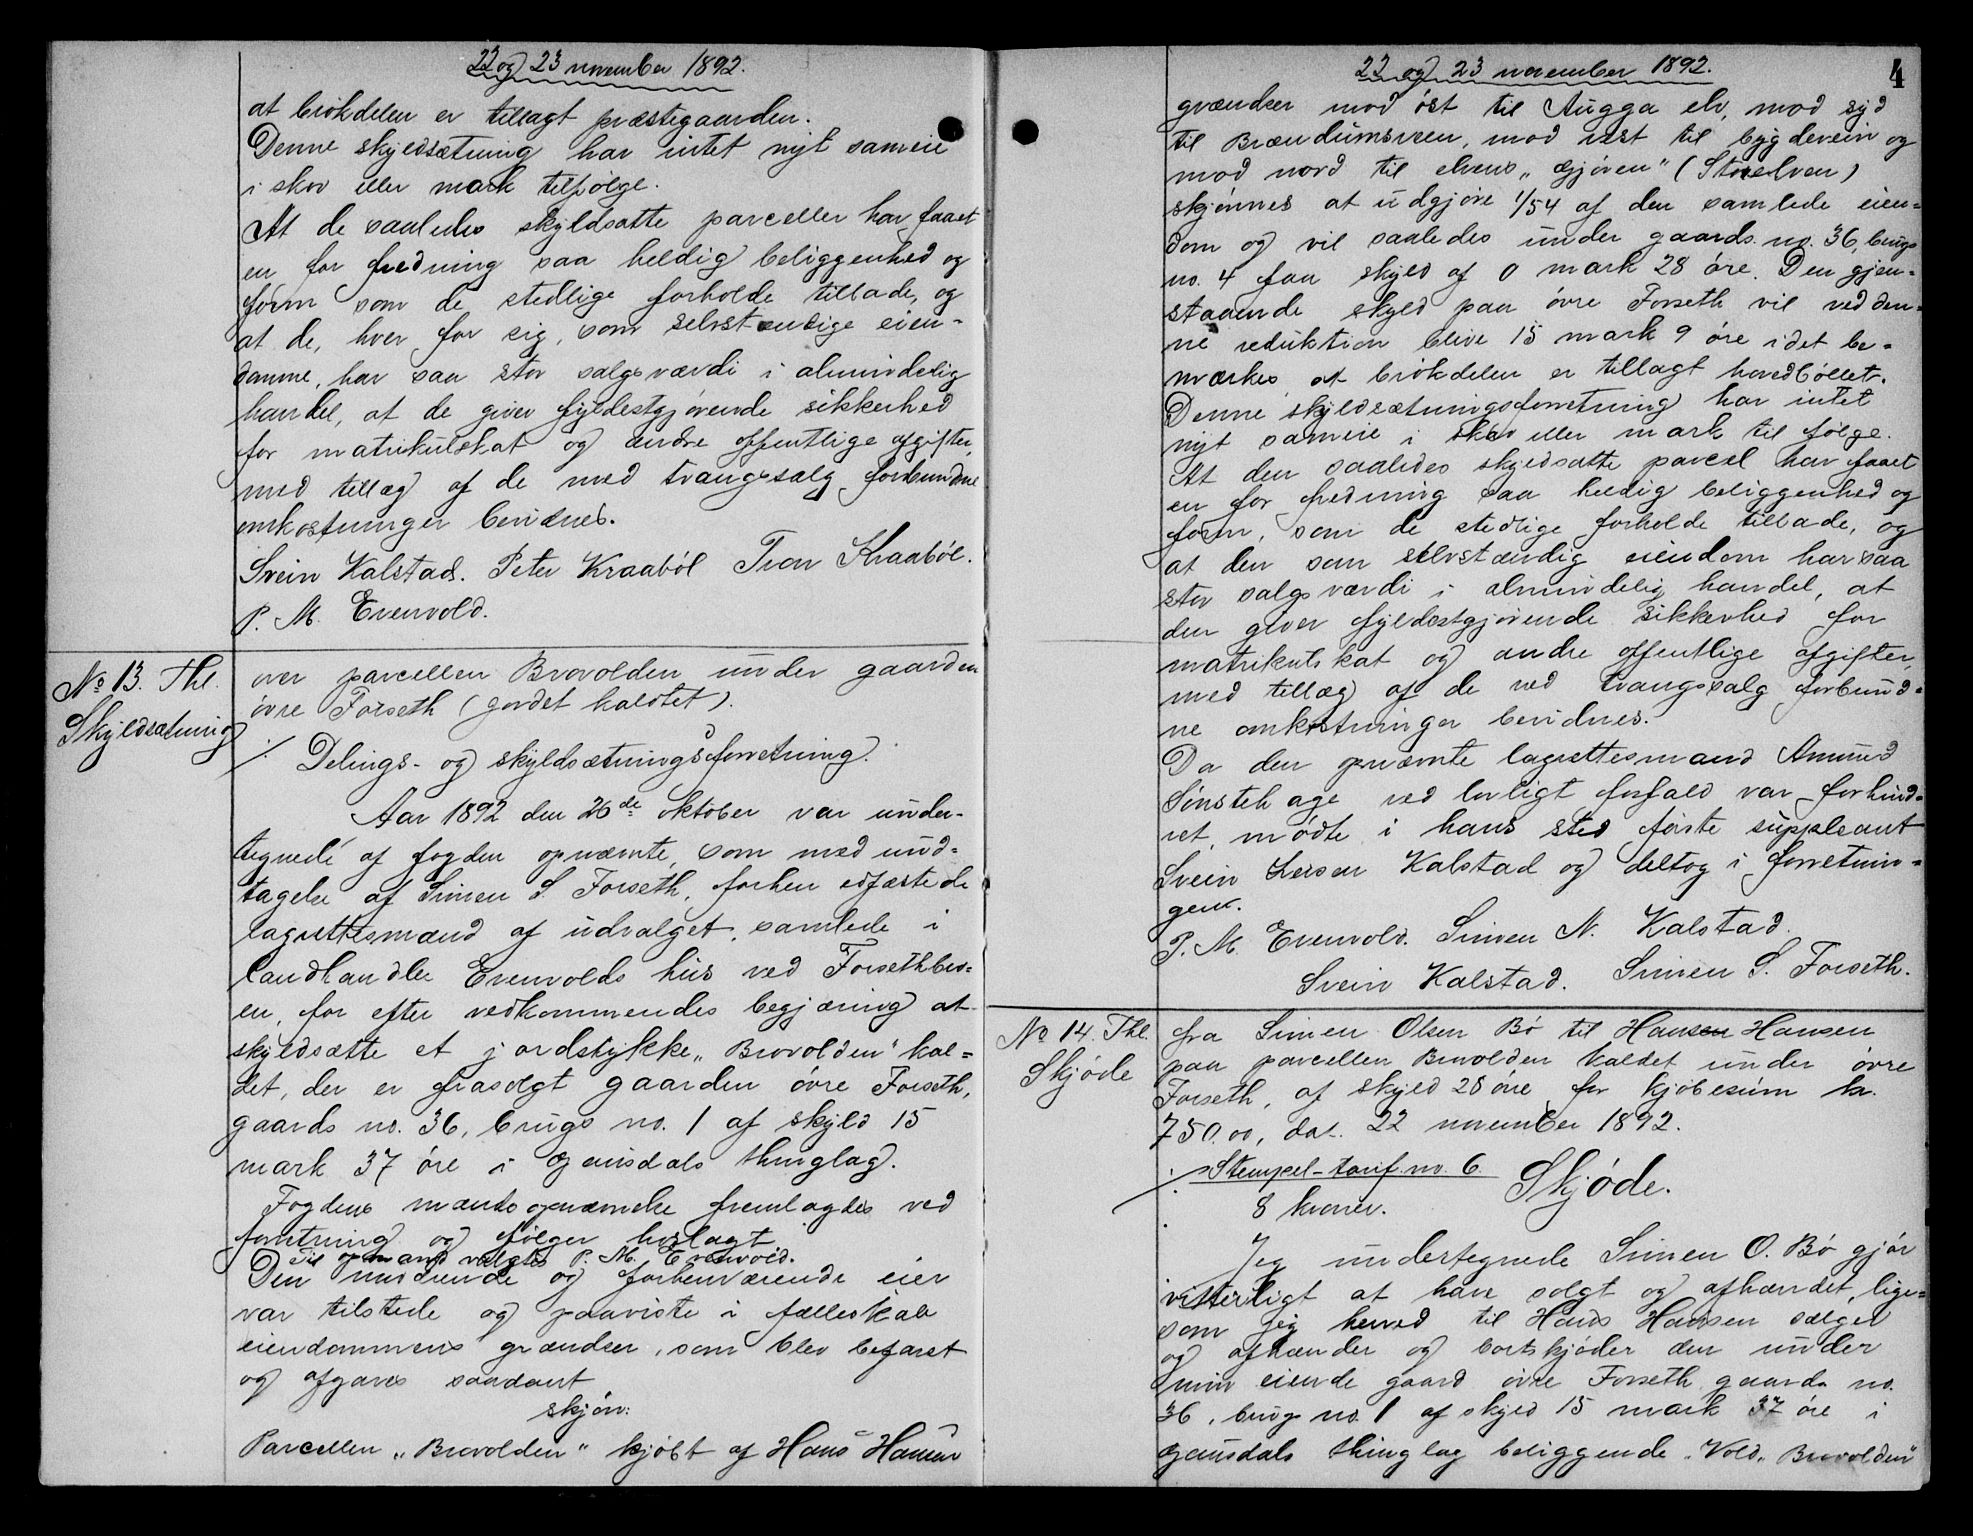 22 og 23 november 1892.
at brökdelen er tillagt præstegaarden.
Denne skyldsætning har intet nyt sameie
i skov eller mark tilfölge.
At de saaledes skyldsatte parceller har faaet
en for fredning saa heldig beliggenhed og
form som de stedlige forholde tillade, og
at de, hver for sig, som selvstændige eien-
domme, har saa stor salgsværdi i almindelig
handel, at de giver fyldestgjörende sikkerhed
for matrikulskat og andre offentlige afgifter,
med tillæg af de med tvangssalg forbundne
omkostninger bevidnes.
Svein Kalstad. Peter Kraaböl Tron Kraaböl.
P. M. Evenvold.
No 13. Thl.
Skyldsætning
over parcellen Brovolden under gaarden
övre Forseth (gardet kaldtet).
./. Delings- og skyldsætningsforretning.
Aar 1892 den 26de oktober var under-
tegnede af fogden opnævnte, som med und-
tagelse af Simen S. Forseth, forhen edfæstede
lagrettesmænd af udvalget, samlede i
landhandler Evenvolds hus ved Forsethbro-
en, for efter vedkommendes begjæring at
skyldsætte et jordstykke "Brovolden" kal-
det, der er frasolgt gaarden övre Forseth,
gaards no. 36, brugs no. 1 af skyld 15
mark 37 öre i Gausdals thinglag.
Fogdens mandsopnævnelse fremlagdes ved
forretning og fölger herlagt
Til opmand valgtes P. M. Evenvold.
Den nuværende og forhenværende eier
var tilstede og paaviste i fælleskab
eiendommens grændser, som blev befaret
og afgaves saadant
skjön:
Parcellen "Brovolden" kjöbt af Hans Hansen
22 og 23 november 1892.
4
grændser mod öst til Augga elv, mod syd
til Brændumsveen, mod vest til bygdeveien og
mod nord til elvens "Gjöven" (Storelven)
skjönnes at udgjöre 1/54 af den samlede eien-
dom og vil saaledes under gaards no. 36, brugs
no. 4 faa skyld af 0 mark 28 öre. Den gjen-
staaende skyld paa övre Forseth vil ved den-
ne reduktion blive 15 mark 9 öre idet be-
mærkes at brökdelen er tillagt hovedböllet.
Denne skyldsætningsforretning har intet
nyt sameie i skov eller mark til fölge.
At den saaledes skyldsatte parcel har faaet
en for fredning saa heldig beliggenhed og
form, som de stedlige forholde tillade, og
at den som selvstændig eiendom har saa
stor salgsværdi i almindelig handel, at
den giver fyldestgjörende sikkerhed for
matrikulskat og andre offentlige afgifter,
med tillæg af de ved tvangssalg forbund-
ne omkostninger bevidnes.
Da den opnævnte lagrettesmand Amund
Sönstehage ved lovligt forfald var forhind-
ret, mödte i hans sted förste suppleant
Svein Larsen Kalstad og deltog i forretnin-
gen.
P. M. Evenvold. Simen N. Kalstad.
Svein Kalstad. Simen S. Forseth.
No 14. Thl.
Skjöde
fra Simen Olsen Bö til Hansen Hansen
paa parcellen Brovolden kaldet under övre
Forseth, af skyld 28 öre, for kjöbesum kr.
750.00, dat. 22 november 1892.
./. Stempel-tarif. no. 6.
8 kroner.
Skjöde.
Jeg undertegnede Simen O. Bö gjör
vitterligt at have solgt og afhændet, lige-
som jeg herved til Hans Hansen sælger
og afhænder og bortskjöder den under
min eiende gaard övre Forseth gaards no.
36, brugs no. 1 af skyld 15 mark 37 öre i
Gausdals thinglag beliggende "Vold" Brovolden"